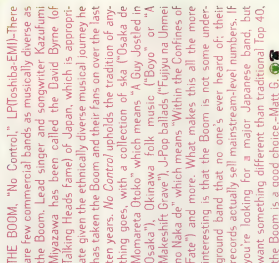 THE BOOM, "No Control," LP(Toshiba-EMI)–There
are few commercial bands as musically diverse as
the Boom. Lead singer and songwriter Kazufumi
Miyazawa has been called the David Byrne (of
Talking Heads fame) of Japan, which is appropri-
ate given the ethnically diverse musical journey he
has taken the Boom and their fans on over the last
ten years. No Control upholds the tradition of any-
thing goes with a collection of ska ("Osaka de
Momareta Otoko" which means "A Guy Jostled in
Osaka"), Okinawa folk music ("Boyo" or "A
Makeshift Grave"), J-Pop ballads ("Fujiyu na Unmei
no Naka de" which means "Within the Confines of
Fate") and more. What makes this all the more
interesting is that the Boom is not some under-
ground band that no one's ever heard of; their
records actually sell mainstream-level numbers. If
you're looking for a major Japanese band, but
want something different than traditional Top 40,
the Boom is a good choice.–Nat G.